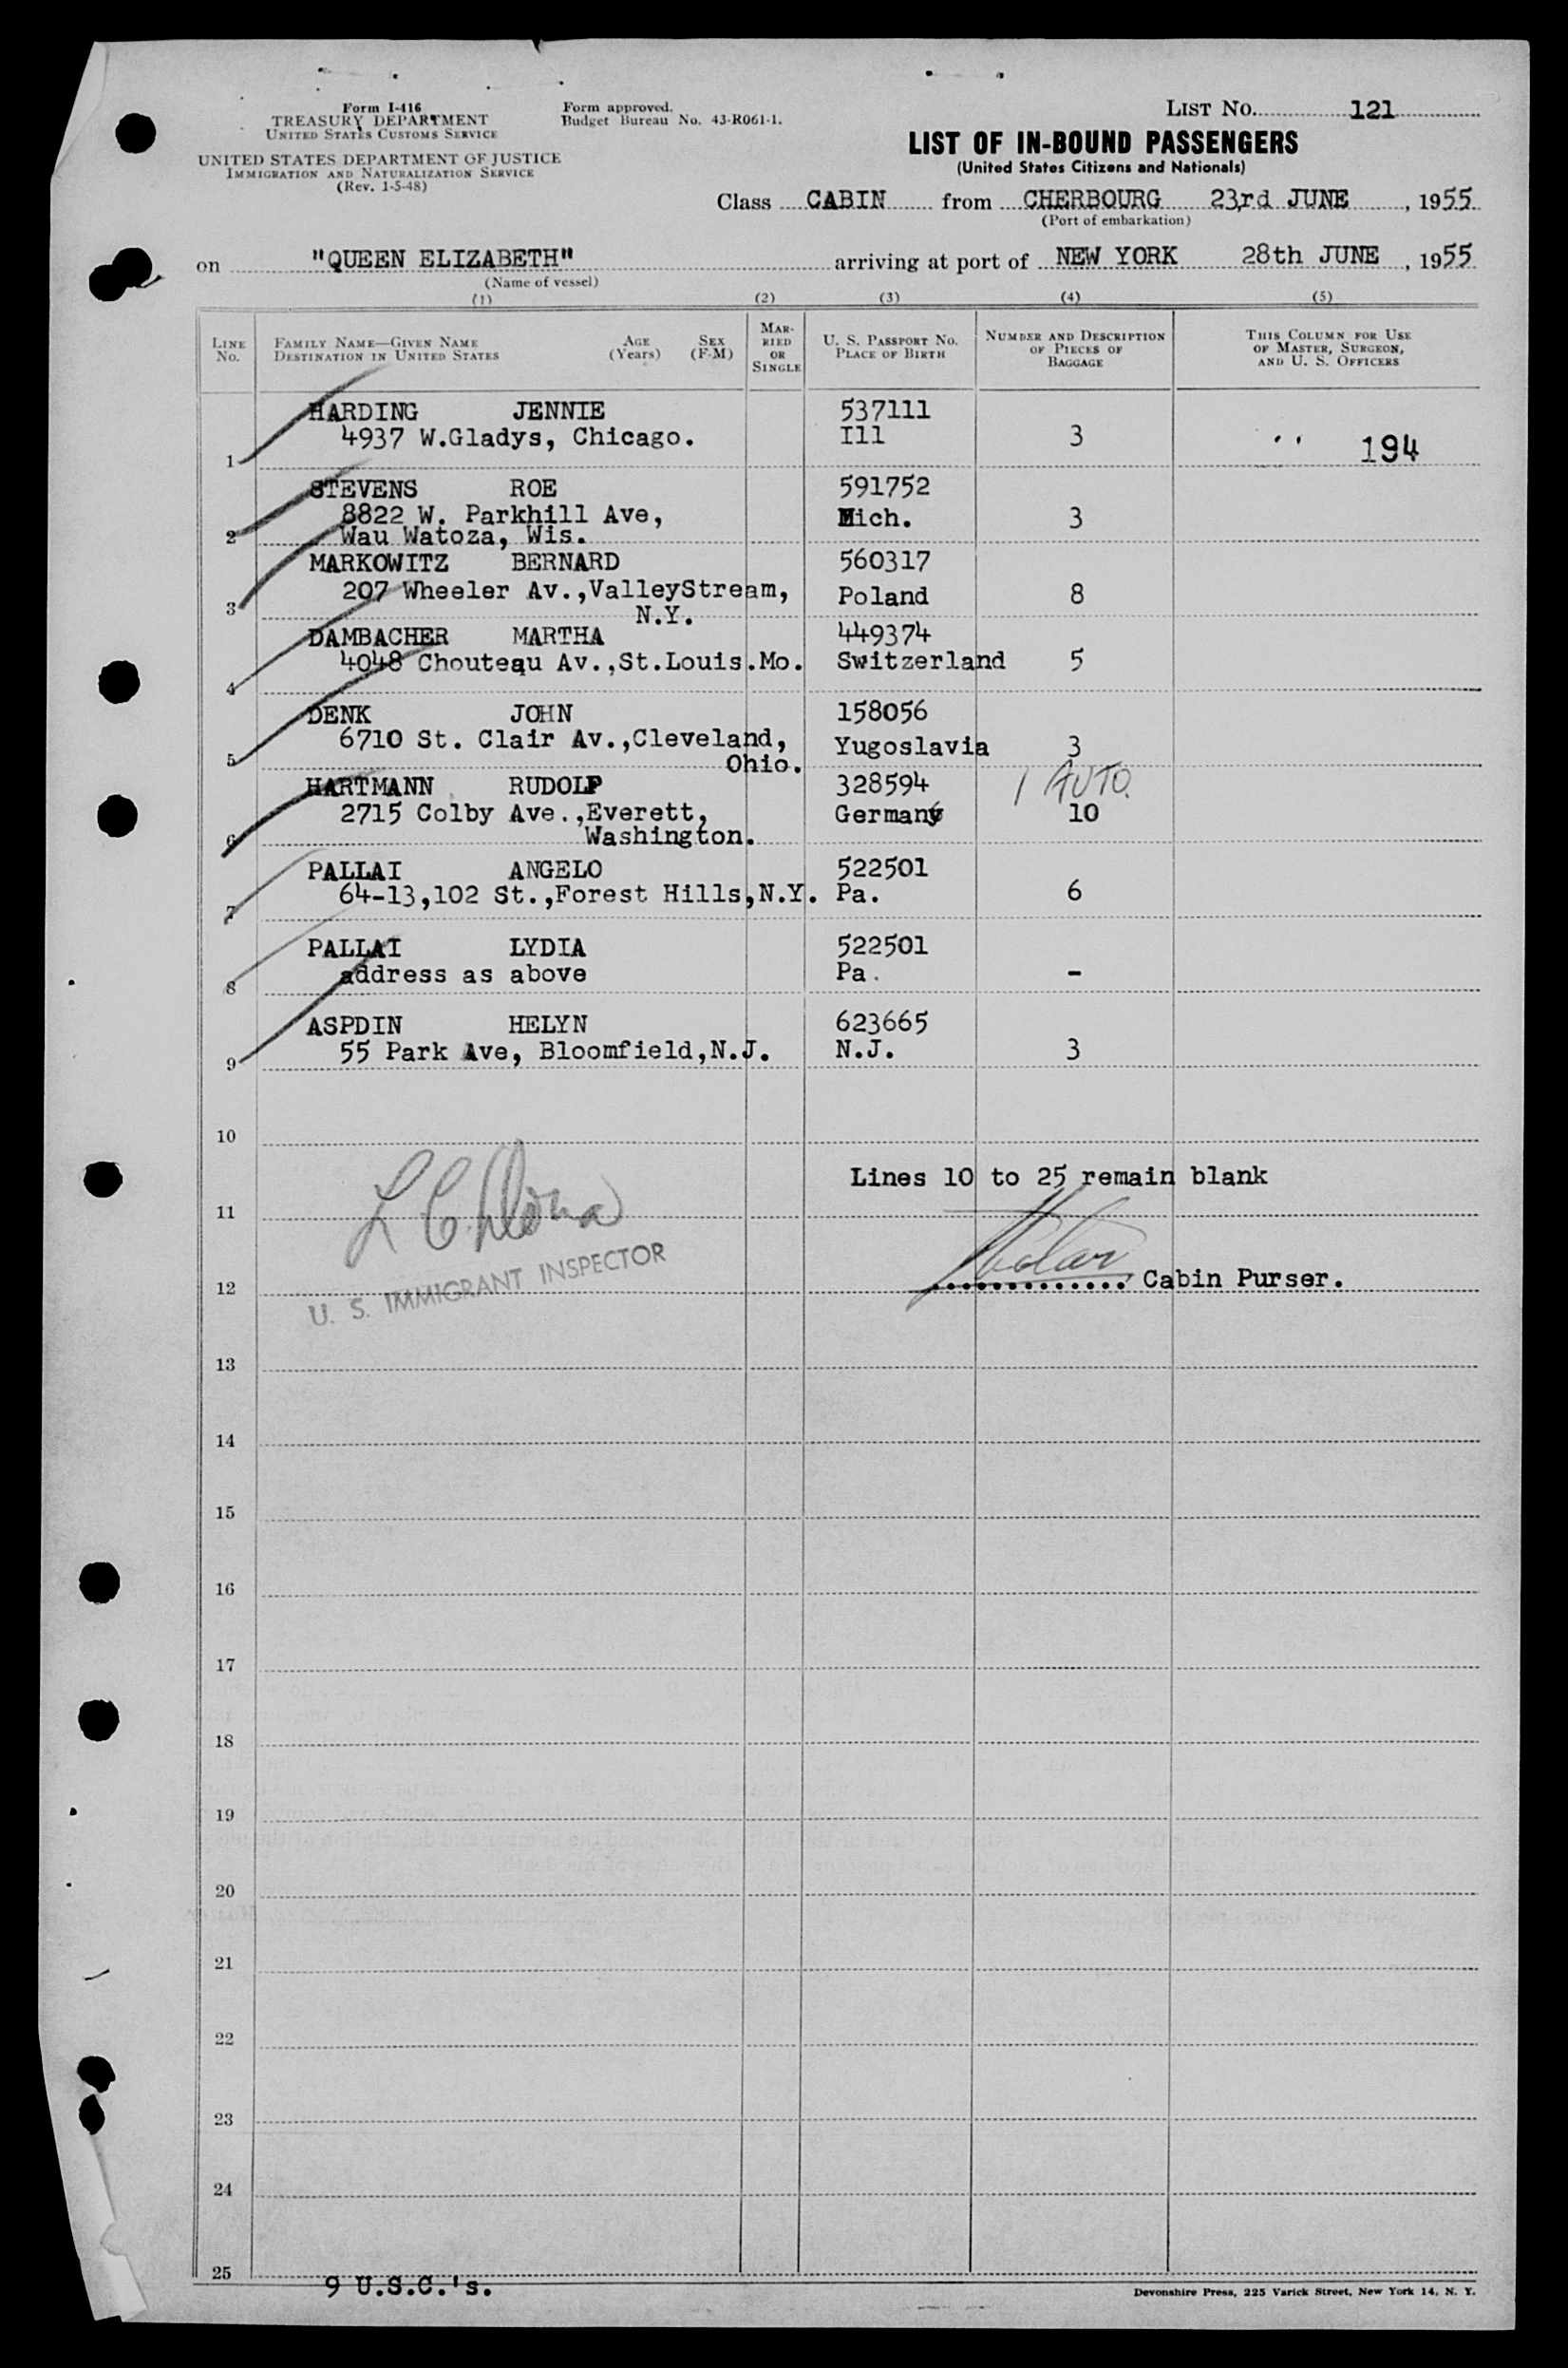 Form I-416
TREASURY DEPARTMENT
UNITED STATES CUSTOMS SERVICE
UNITED STATES DEPARTMENT OF JUSTICE
IMMIGRATION AND NATURALIZATION SERVICE
(Rev. 1-5-48)
Form approved.
Budget Bureau No. 43-R061-1.
LIST NO. 121
LIST OF IN-BOUND PASSENGERS
(United States Citizens and Nationals)
Class CABIN from CHERBOURG 23rd JUNE, 1955
(Port of embarkation)
on "QUEEN ELIZABETH" arriving at port of NEW YORK 28th JUNE, 1955
(Name of vessel)
(1) (2) (3) (4) (5)
LINE NO. FAMILY NAME—GIVEN NAME DESTINATION IN UNITED STATES AGE (Years) SEX (F-M) MARRIED OR SINGLE U. S. PASSPORT NO. PLACE OF BIRTH NUMBER AND DESCRIPTION OF PIECES OF BAGGAGE THIS COLUMN FOR USE OF MASTER, SURGEON, AND U. S. OFFICERS
HARDING JENNIE 537111
4937 W.Gladys, Chicago. Ill 3 194
1
STEVENS ROE 591752
8822 W. Parkhill Ave, Mich. 3
2 Wau Watoza, Wis.
MARKOWITZ BERNARD 560317
207 Wheeler Av.,ValleyStream, Poland 8
3 N.Y.
DAMBACHER MARTHA 449374
4048 Chouteau Av.,St.Louis.Mo. Switzerland 5
4
DENK JOHN 158056
6710 St. Clair Av.,Cleveland, Yugoslavia 3
5 Ohio.
HARTMANN RUDOLF 328594 1 AUTO.
2715 Colby Ave.,Everett, Germany 10
6 Washington.
PALLAI ANGELO 522501
64-13,102 St.,Forest Hills,N.Y. Pa. 6
7
PALLAI LYDIA 522501
address as above Pa. -
8
ASPDIN HELYN 623665
55 Park Ave, Bloomfield,N.J. N.J. 3
9
10
Lines 10 to 25 remain blank
11
U. S. IMMIGRANT INSPECTOR
12 Cabin Purser.
13
14
15
16
17
18
19
20
21
22
23
24
25
9 U.S.C.'s.
Devonshire Press, 225 Varick Street, New York 14, N. Y.